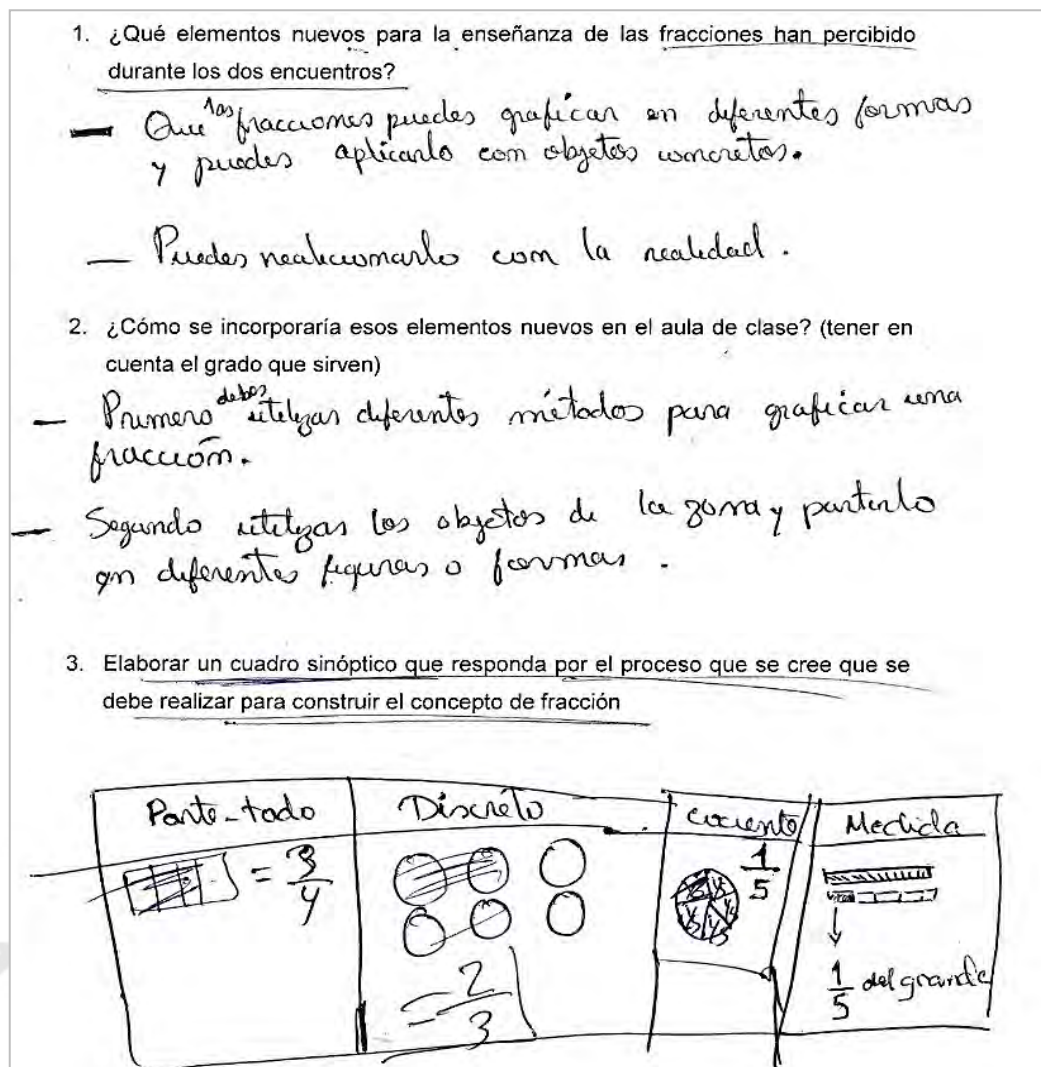 1. ¿Qué elementos nuevos para la enseñanza de las fracciones han percibido
durante los dos encuentros?
— Que las fracciones puedes graficar en diferentes formas
y puedes aplicarlo con objetos concretos.
— Puedes realicionarlo con la realidad.
2. ¿Cómo se incorporaría esos elementos nuevos en el aula de clase? (tener en
cuenta el grado que sirven)
— Primero debes utilizar diferentes métodos para graficar una
fracción.
— Segundo utilizar los objetos de la zona y partirlo
en diferentes figuras o formas.
3. Elaborar un cuadro sinóptico que responda por el proceso que se cree que se
debe realizar para construir el concepto de fracción
Parte-todo Discreto cociente Medida
= 3/4
= 2/3
1/5
1/5 1/5 1/5
1/5 del grande